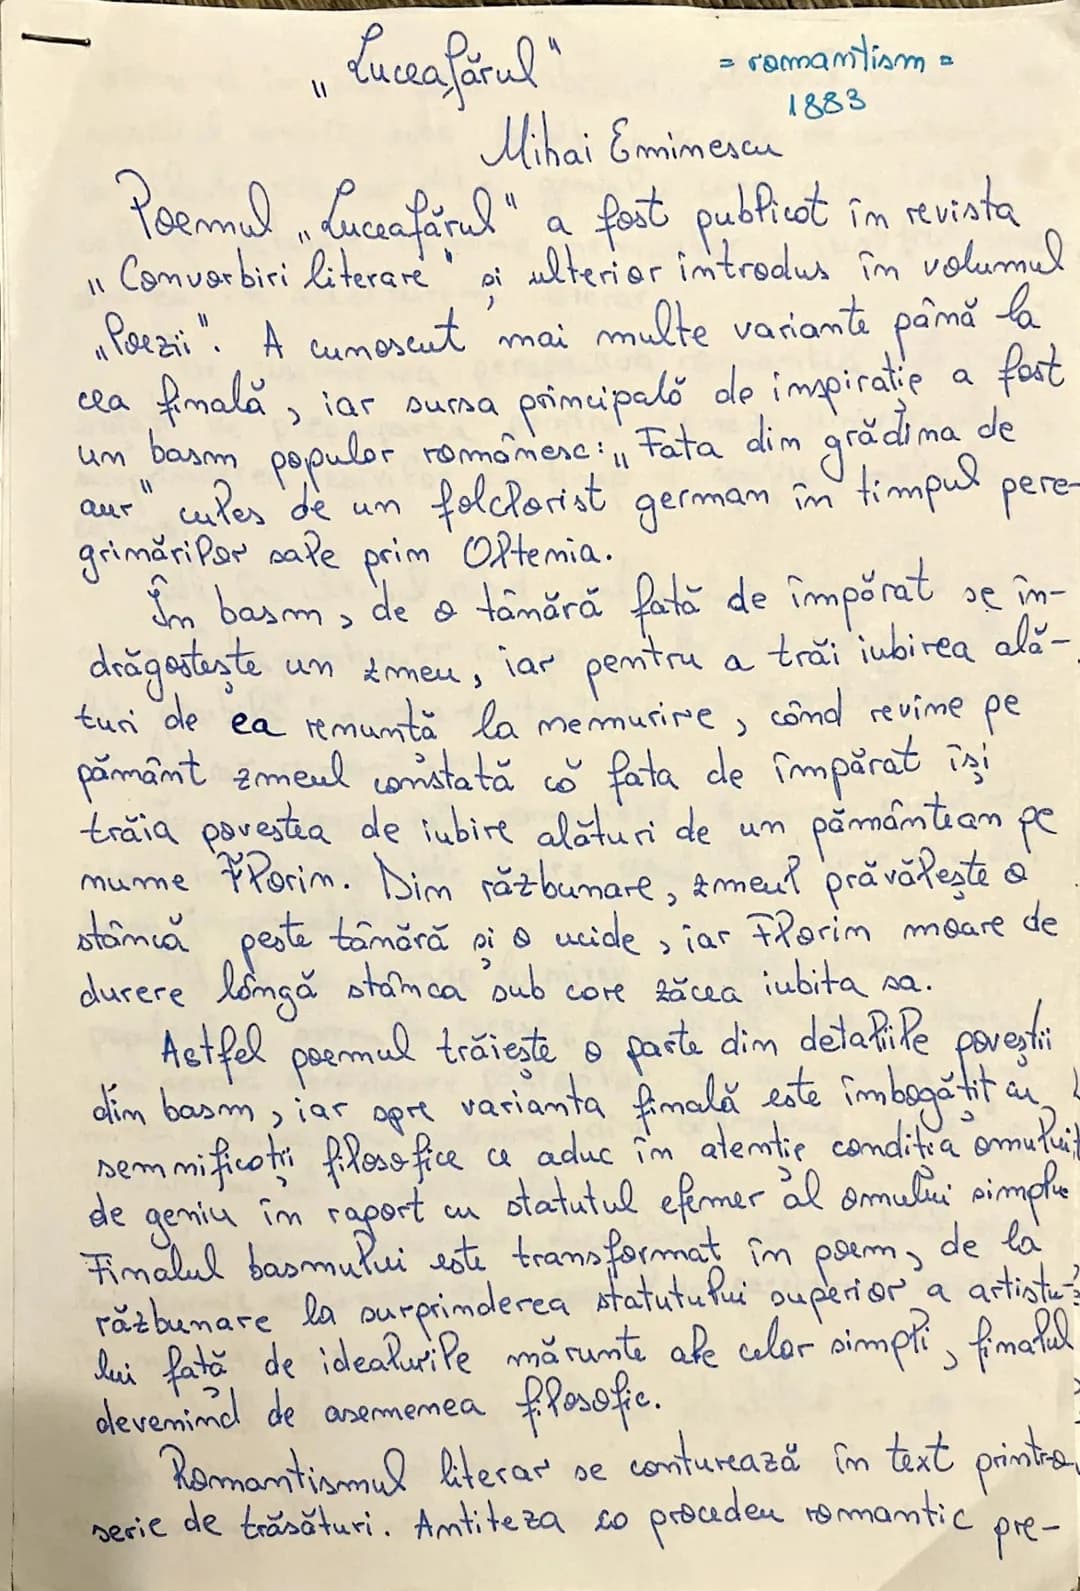 „Luceafărul"
= romantism =
1883
Mihai Eminescu
Poemul „Luceafărul" a fost publicat în revista
„Convorbiri literare" și ulterior introdus în volumul
„Poezii". A cunoscut mai multe variante până la
cea finală, iar sursa principală de inspirație a fost
un basm popular românesc: „Fata din grădina de
aur" cules de un folclorist german în timpul pere-
grinărilor sale prin Oltenia.
În basm, de o tânără fată de împărat se în-
drăgostește un zmeu, iar pentru a trăi iubirea ală-
turi de ea renunță la nemurire, când revine pe
pământ zmeul constată că fata de împărat își
trăia povestea de iubire alături de un pământean pe
nume Florin. Din răzbunare, zmeul prăvălește o
stâncă peste tânără și o ucide, iar Florin moare de
durere lângă stânca sub care zăcea iubita sa.
Astfel poemul trăiește o parte din detaliile poveștii
din basm, iar spre varianta finală este îmbogățit cu
semnificații filosofice ce aduc în atenție condiția omului
de geniu în raport cu statutul efemer al omului simplu
Finalul basmului este transformat în poem, de la
răzbunare la surprinderea statutului superior a artistu-
lui față de idealurile mărunte ale celor simpli, finalul
devenind de asemenea filosofic.
Romantismul literar se conturează în text printr-o
serie de trăsături. Antiteza ca procedeu romantic pre-